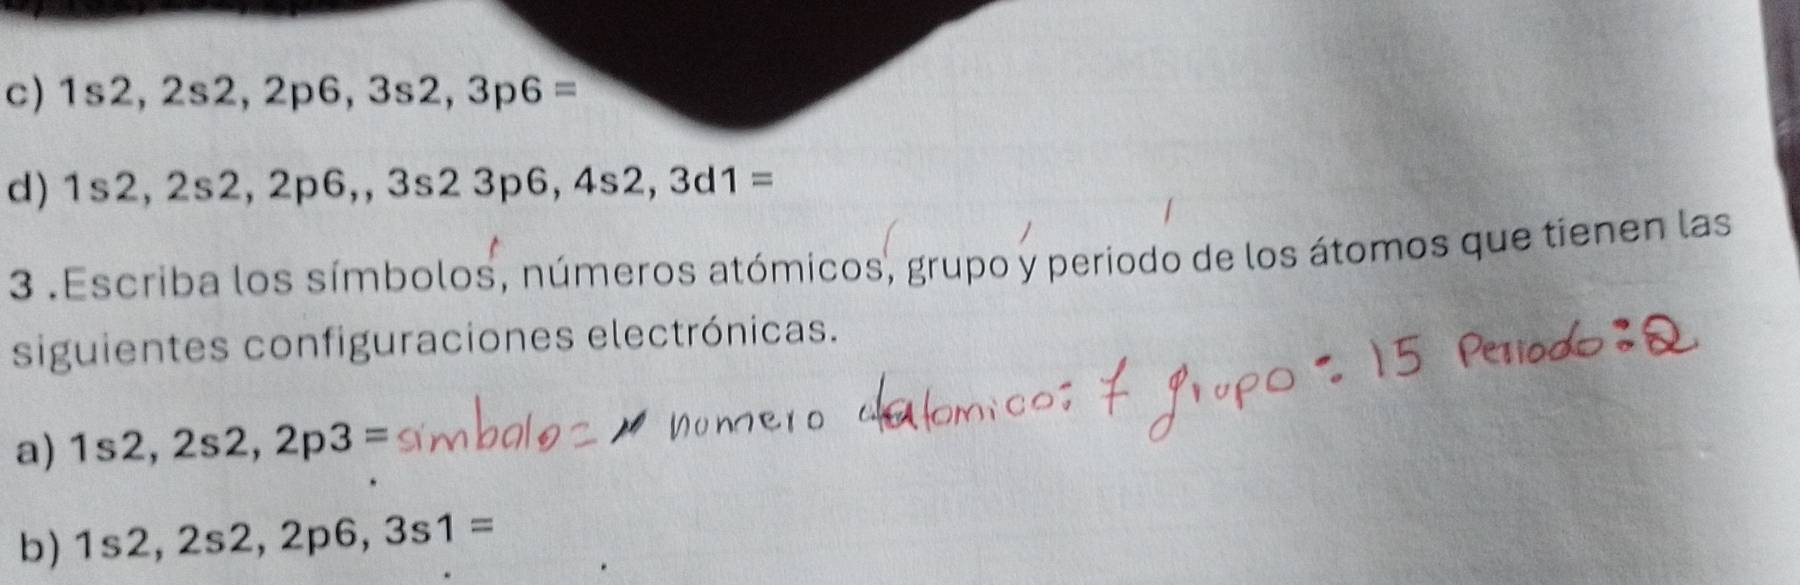 c) 1s2, 2s2, 2p6, 3s2, 3p6 =
d) 1s2, 2s2, 2p6,, 3s2 3p6, 4s2, 3d1 =
3 .Escriba los símbolos, números atómicos, grupo y periodo de los átomos que tienen las
siguientes configuraciones electrónicas.
a) 1s2, 2s2, 2p3 = simbolo = N numero atomico: 7 grupo: 15 Periodo: 2
b) 1s2, 2s2, 2p6, 3s1 =